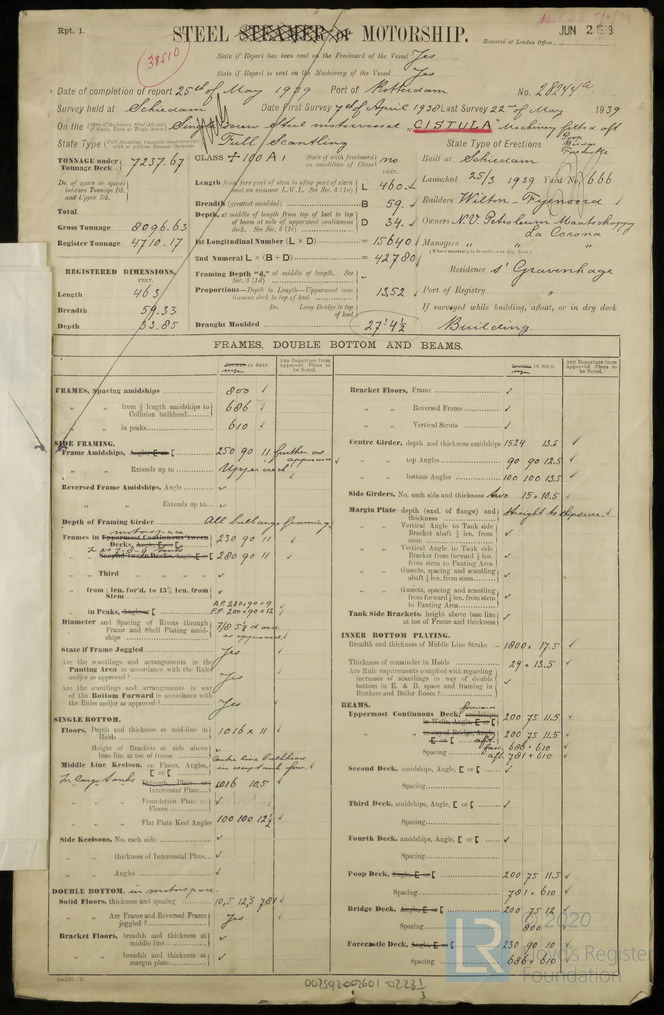 Rpt. 1.
38510
STEEL STEAMER or MOTORSHIP.
JUN 2 1939
Received at London Office
State if Report has been sent on the Freeboard of the Vessel Yes
State if Report is sent on the Machinery of the Vessel Yes
Date of completion of report 25th of May 1939 Port of Rotterdam No. 28244a
Survey held at Schiedam Date First Survey 7th of April 1938 Last Survey 22nd of May 1939
On the Single Screw Steel motorvessel "CISTULA" Machinery fitted aft
State Type Full Scantling
State Type of Erections Poop Bridge Forecastle
TONNAGE under Tonnage Deck 7237.67
Do. of space or spaces between Tonnage Dk. and Upper Dk.
Total
Gross Tonnage 8096.63
Register Tonnage 4710.17
REGISTERED DIMENSIONS.
FEET.
Length 463
Breadth 59.33
Depth 33.85
CLASS + 100 A1 State if with freeboard as condition of Class no
FEET.
Length from fore part of stem to after part of stern post on summer L.W.L. See Sec. 3 (1a) L 460
Breadth (greatest moulded) B 59.
Depth, at middle of length from top of keel to top of beam at side of uppermost continuous deck. See Sec. 3 (1c) D 34.
1st Longitudinal Number (L × D) = 15640
2nd Numeral L × (B + D) = 42780
Framing Depth "d," at middle of length. See Sec. 3 (1d)
Proportions—Depth to Length—Uppermost continuous deck to top of keel 13.52
Do. Long Bridge to top of keel
Draught Moulded 27' 4½
Built at Schiedam
Launched 25/3 1939 Yard No. 666
Builders Wilton-Fijenoord
Owners N.V. Petroleum Maatschappy La Corona
Managers " " "
Residence s' Gravenhage
Port of Registry "
If surveyed while building, afloat, or in dry dock
Building
FRAMES, DOUBLE BOTTOM AND BEAMS.
IN SHIP.
Any Departure from Approved Plans to be Noted.
IN SHIP.
Any Departure from Approved Plans to be Noted.
FRAMES, Spacing amidships 800 ✓
" " from ⅗ length amidships to Collision bulkhead 686 ✓
" " in peaks 610 ✓
SIDE FRAMING.
Frame Amidships, Angle, E or [ 250 90 11 further as approved ✓
" " Extends up to Upper deck ✓
Reversed Frame Amidships, Angle ✓
" " Extends up to ✓
Depth of Framing Girder All bulb ang. framing
Frames in Uppermost Continuous 'tween Decks, Angle, E or [ motorspace 230 90 11 ✓
" " Second 'tween Decks, Angle, E or [ 280 90 11 ✓
" " Third " " ✓
" " from ⅕ len. for'd. to 15% len. from Stem ✓
" " in Peaks, Angle or [ A.P. 230 × 90 × 9 F.P. 200 × 90 × 12 ✓
Diameter and Spacing of Rivets through Frame and Shell Plating amidships 7/8 5 d and as approved ✓
State if Frame Joggled Yes ✓
Are the scantlings and arrangements in the Panting Area in accordance with the Rules and/or as approved? Yes ✓
Are the scantlings and arrangements in way of the Bottom Forward in accordance with the Rules and/or as approved? Yes ✓
SINGLE BOTTOM.
Floors, Depth and thickness at mid-line in Holds 1016 × 11 ✓
Height of Brackets at side above base line at toe of frame ✓
Middle Line Keelson, on Floors, Angles, E or [ Centre line bulkhead in cargotank fore ✓
In Cargo tanks
" " Intercostal Plate 1016 10.5 ✓
" " Foundation Plate on Floors ✓
" " Flat Plate Keel Angles 100 100 12½ ✓
Side Keelsons, No. each side ✓
" " thickness of Intercostal Plate ✓
" " Angles ✓
DOUBLE BOTTOM. in motorspace
Solid Floors, thickness and spacing 10.5 12.5 781 ✓
" " Are Frame and Reversed Frame joggled? Yes ✓
Bracket Floors, breadth and thickness at middle line ✓
" " breadth and thickness at margin plate ✓
Bracket Floors, Frame ✓
" " Reversed Frame ✓
" " Vertical Struts ✓
Centre Girder, depth and thickness amidships 1524 13.5 ✓
" " top Angles 90 90 12.5 ✓
" " bottom Angles 100 100 13.5 ✓
Side Girders, No. each side and thickness two 15 + 10.5 ✓
Margin Plate depth (excl. of flange) and thickness Straight to shipside ✓
" " Vertical Angle to Tank side Bracket abaft ¼ len. from stem ✓
" " Vertical Angle to Tank side Bracket from forward ¼ len. from stem to Panting Area ✓
" " Gussets, spacing and scantling abaft ¼ len. from stem ✓
" " Gussets, spacing and scantling from forward ¼ len. from stem to Panting Area ✓
Tank Side Brackets, height above base line at toe of Frame and thickness ✓
INNER BOTTOM PLATING.
Breadth and thickness of Middle Line Strake 1800 × 17.5 ✓
Thickness of remainder in Holds 29 + 13.5 ✓
Are Rule requirements complied with regarding increases of scantlings in way of double bottom in E. & B. space and framing in Bunkers and Boiler Room? ✓
BEAMS.
Uppermost Continuous Deck, amidships forward 200 75 11.5 ✓
" " in way of Bridge, Angle, E or [ aft 200 75 11.5 ✓
Spacing for. 686 + 610 aft. 781 + 610 ✓
Second Deck, amidships, Angle, E or [ ✓
Spacing
Third Deck, amidships, Angle, E or [ ✓
Spacing
Fourth Deck, amidships, Angle, E or [ ✓
Spacing
Poop Deck, Angle, E or [ 200 75 11.5 ✓
Spacing 781 + 610 ✓
Bridge Deck, Angle, E or [ 200 75 12 ✓
Spacing 800
Forecastle Deck, Angle, E or [ 230 90 10 ✓
Spacing 686 + 610 ✓
LR
© 2020
Lloyd's Register
Foundation
002592-002601-0223 1/3